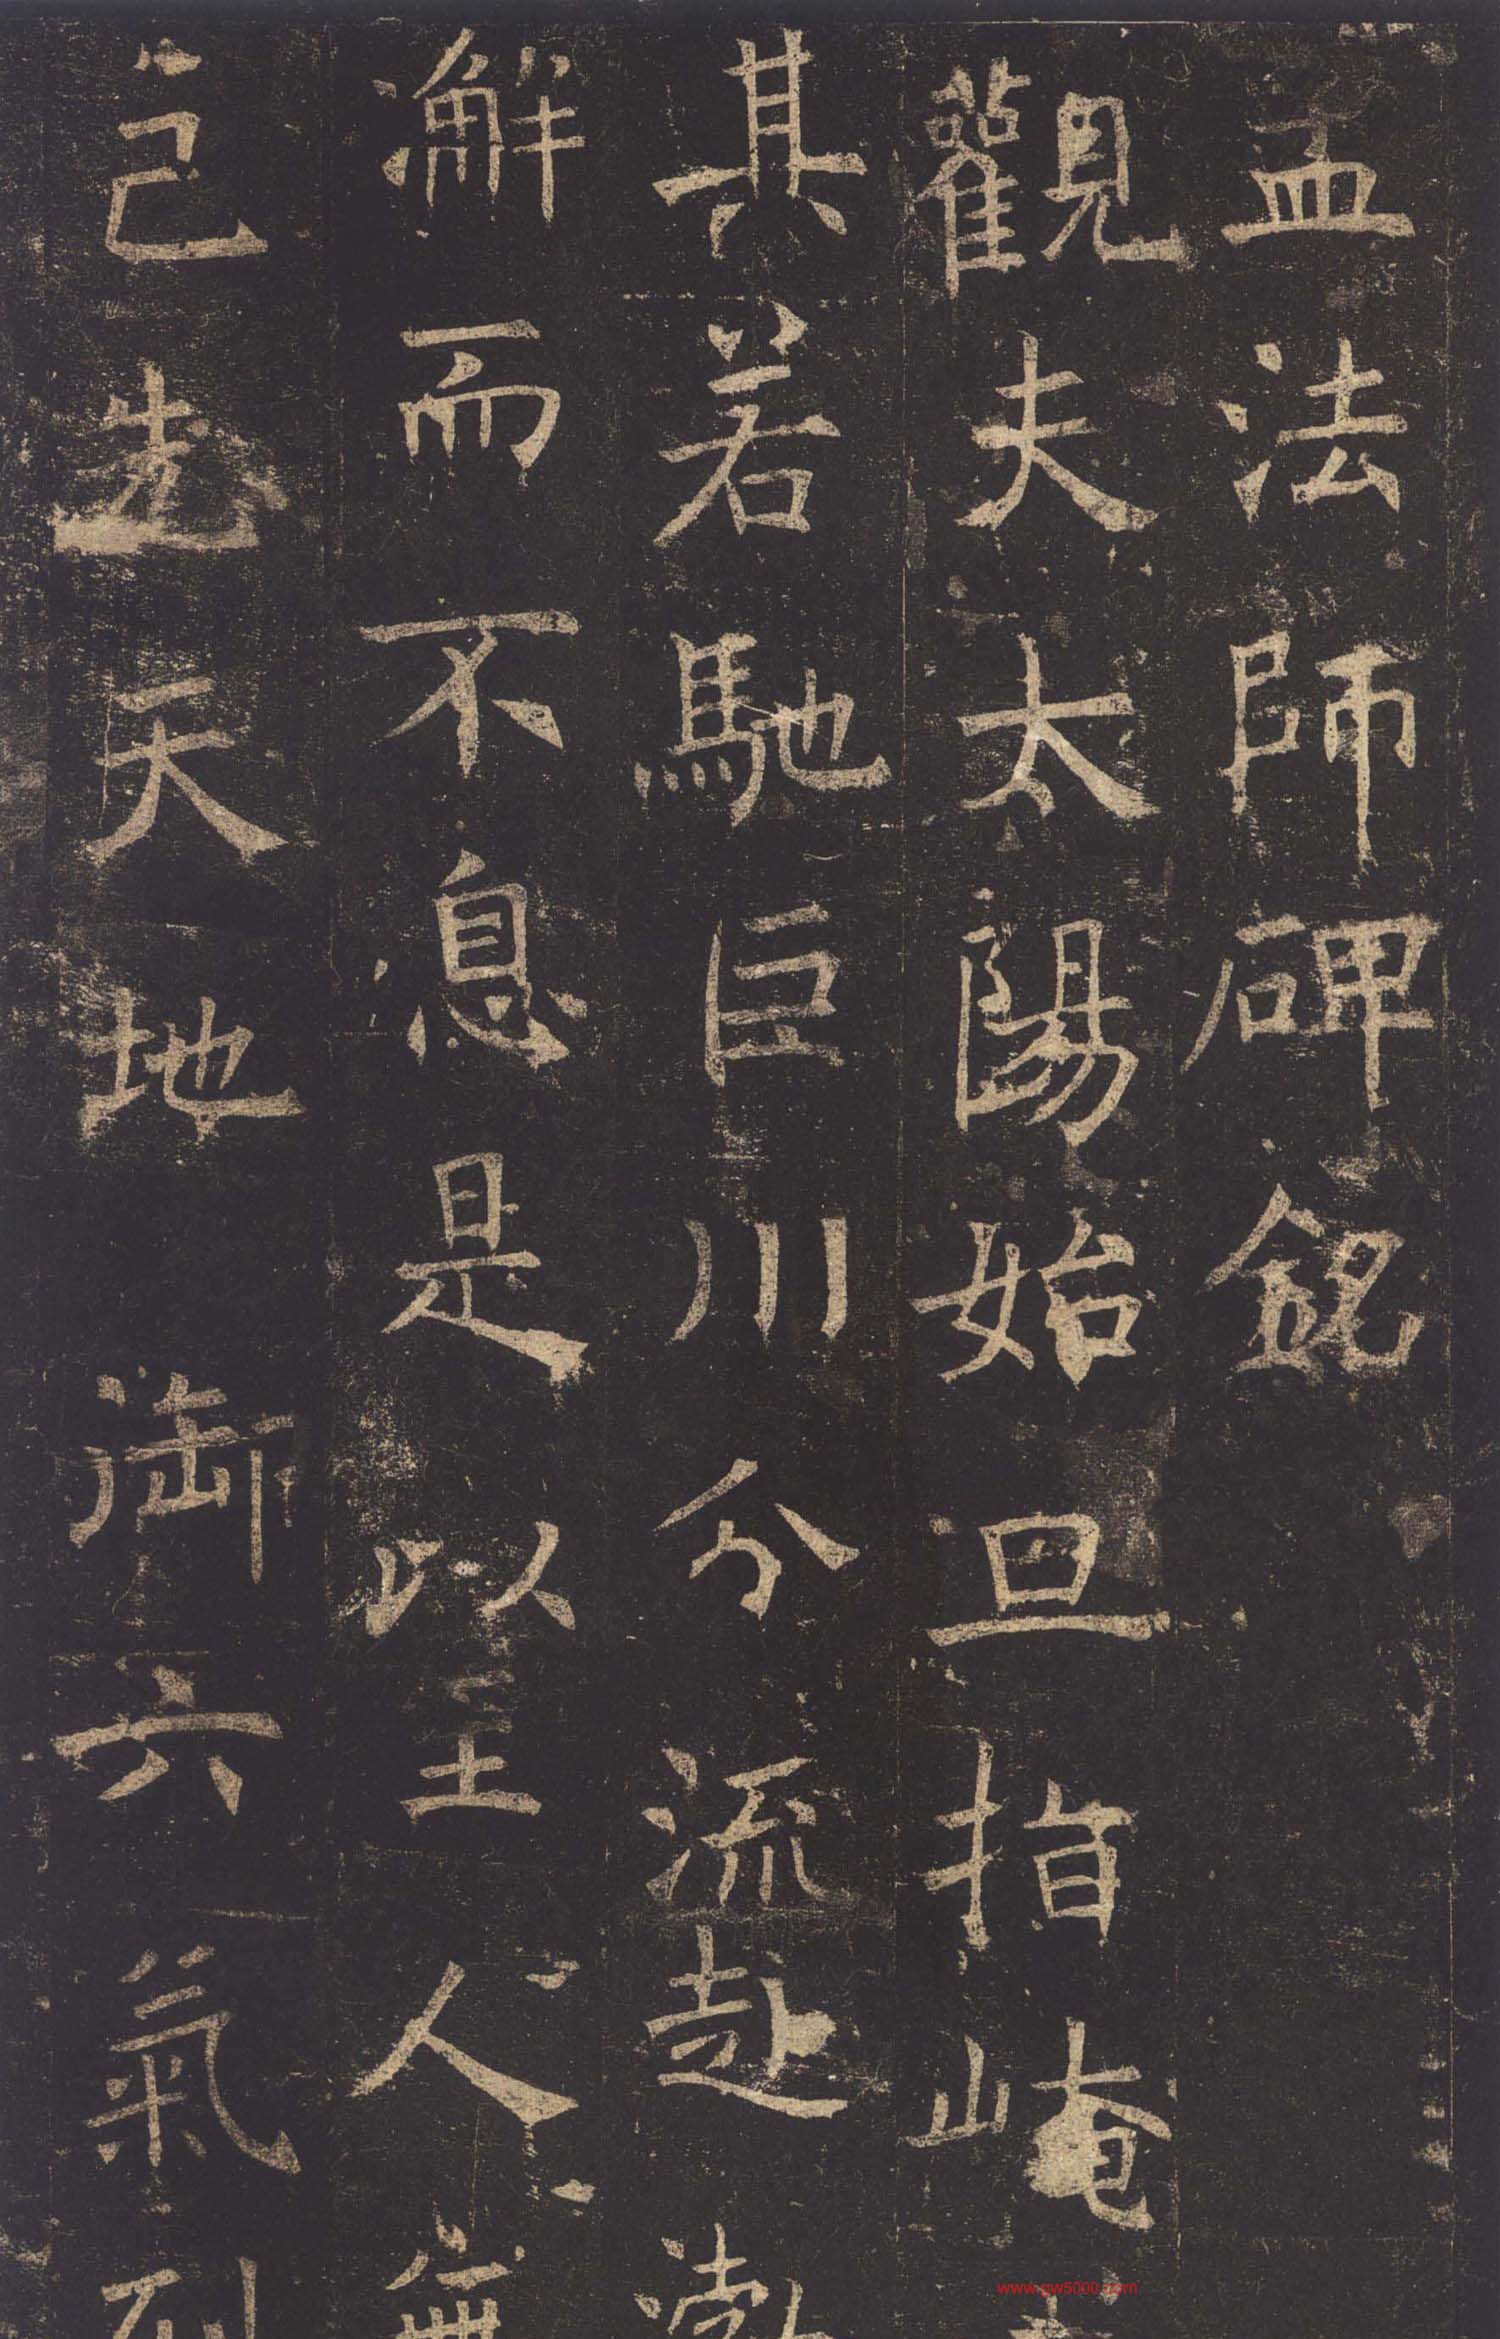 孟法師碑銘
觀夫太陽始旦指崦
其若馳巨川分流赴渤
澥而不息是以至人無
己先天地御六氣列
www.gw5000.com